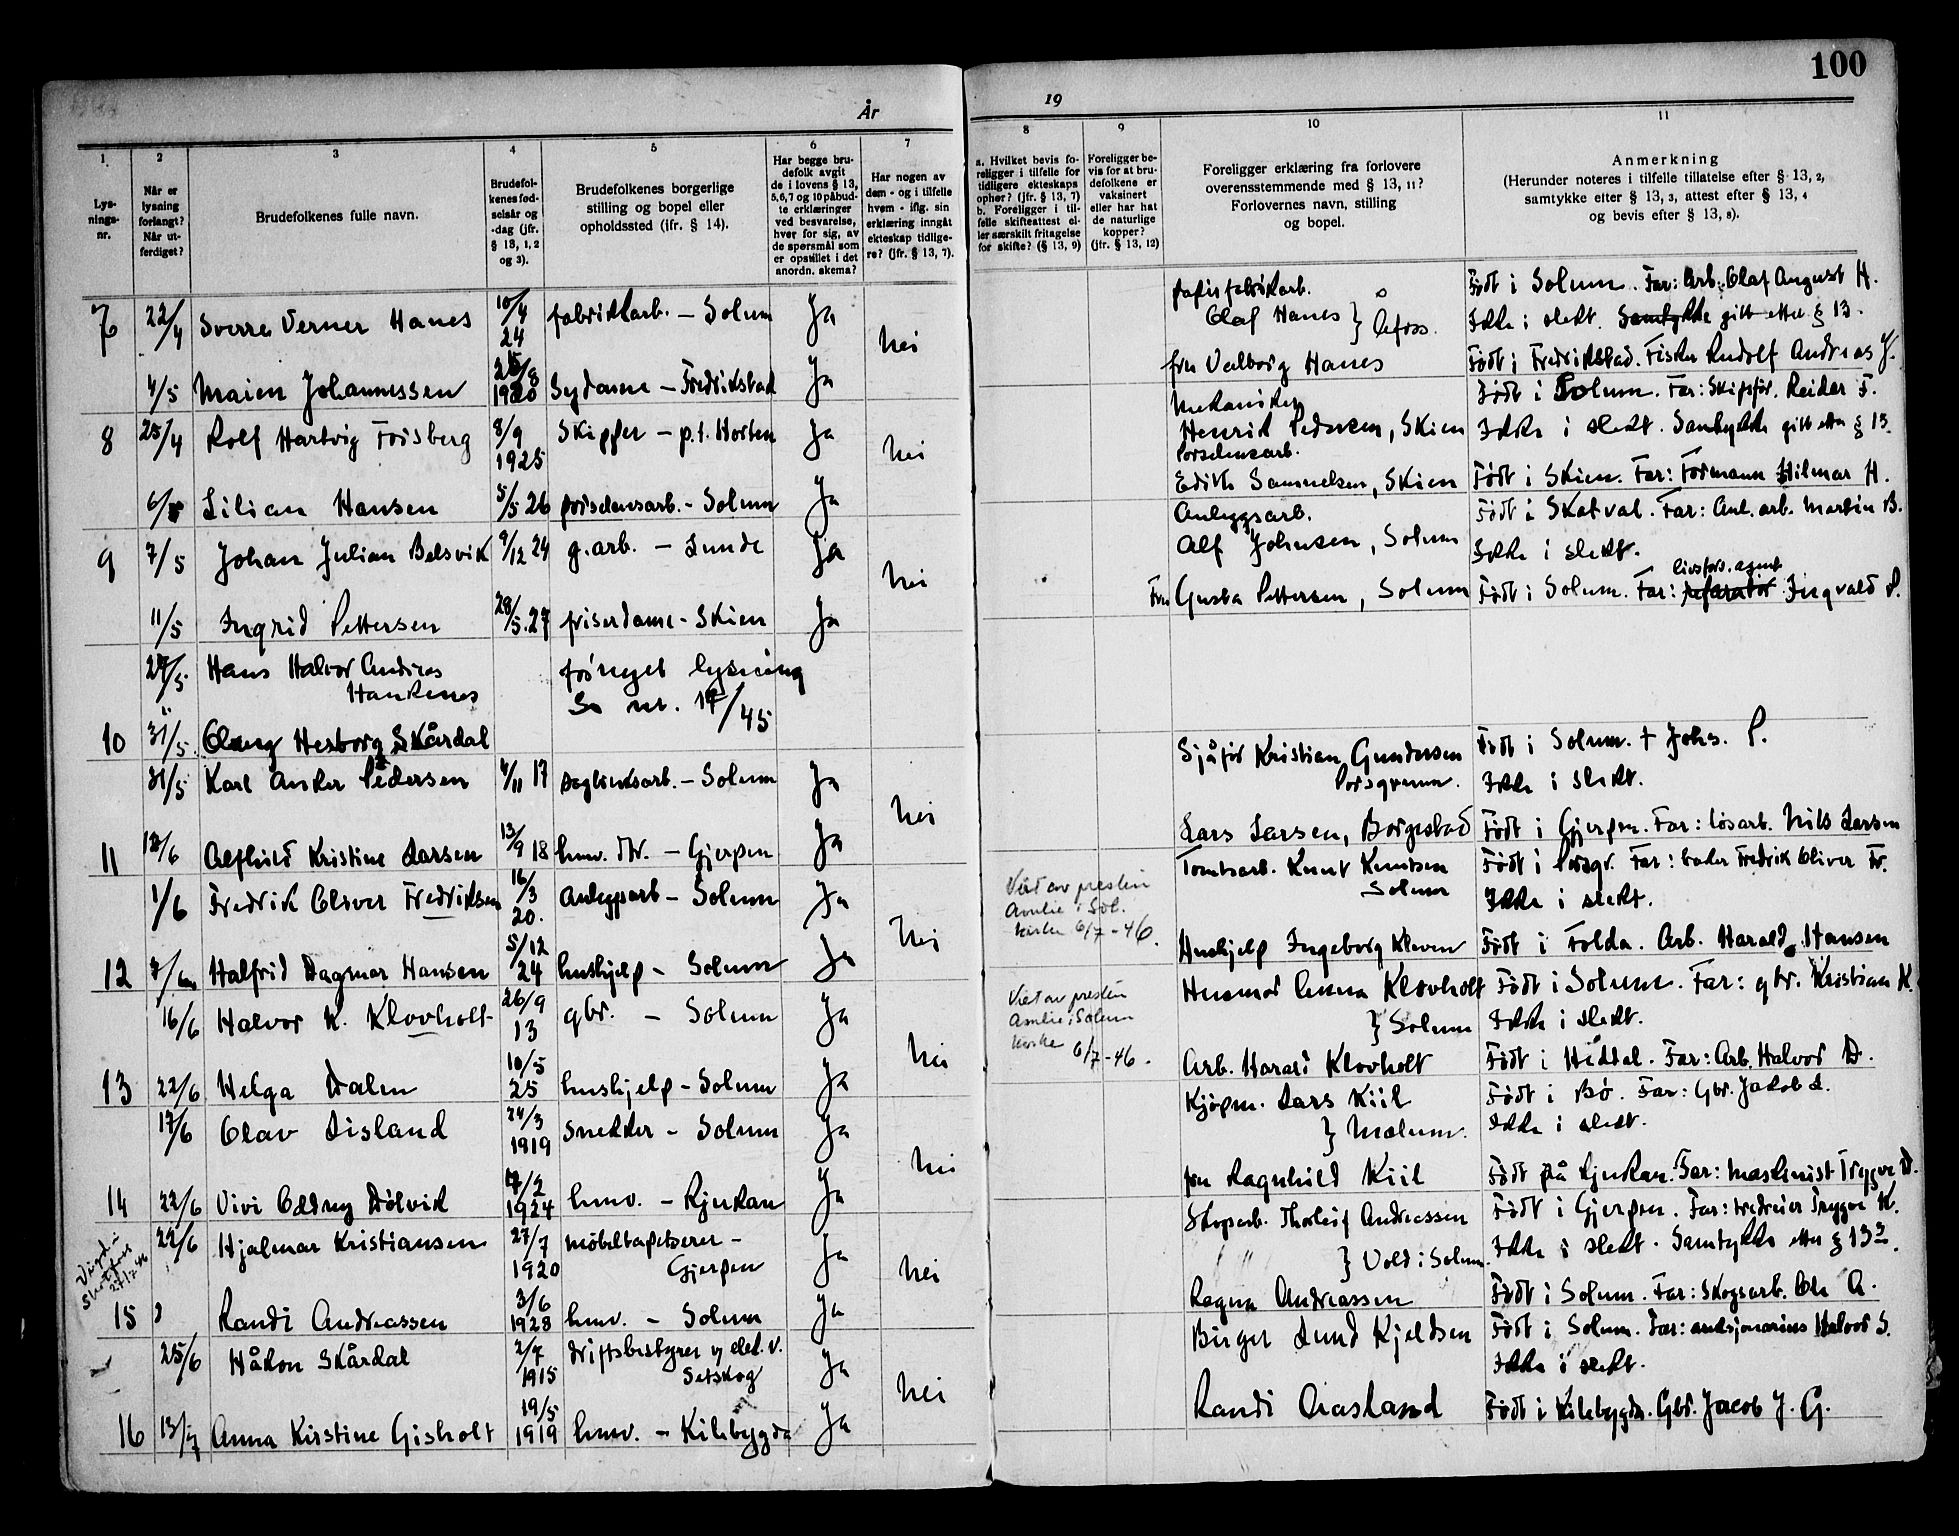 100
År
19
1.
Lys-
nings-
nr.
2
Når er
lysning
forlangt?
Når ut-
ferdiget?
3
Brudefolkenes fulle navn.
4
Brudefol-
kenes fød-
selsår og
-dag (jfr.
§ 13, 1, 2
og 3).
5
Brudefolkenes borgerlige
stilling og bopel eller
opholdssted (ifr. § 14).
6
Har begge bru-
defolk avgit
de i lovens § 13,
5,6,7 og 10 påbud-
te erklæringer
ved besvarelse,
hver for sig, av
de spørsmål som
er opstillet i det
anordn. skema?
7
Har nogen av
dem - og i tilfelle
hvem - iflg. sin
erklæring inngåt
ekteskap tidlige-
re? (jfr. § 13, 7).
8
a. Hvilket bevis fo-
religger i tilfelle for
tidligere ekteskaps
ophør? (jfr. § 13, 7)
b. Foreligger i til-
felle skifteattest el-
ler særskilt fritagelse
for skifte? (§ 13, 9)
9
Foreligger be-
vis for at bru-
defolkene er
vaksinert
eller har hat
de naturlige
kopper?
(jfr. § 13, 12)
10
Foreligger erklæring fra forlovere
overensstemmende med § 13, 11?
Forlovernes navn, stilling
og bopel.
11
Anmerkning
(Herunder noteres i tilfelle tillatelse efter § 13, 2,
samtykke efter § 13, 3, attest efter § 13, 4
og bevis efter § 13, 8).
7 22/4 Sverre Verner Hanes 10/4 24 fabrikkarb. - Solum Ja nei
papirfabrikarb. Olaf Hanes } Åfoss.
Født i Solum. Far: Arb. Olaf August H.
Ikke i slekt. Samtykke gitt etter § 13.
4/5 Maien Johannessen 1920 Sydame - Fredrikstad Ja
fru Valborg Hanes
Født i Fredrikstad. Fisker Rudolf Andreas J.
8 25/4 Rolf Hartvig Forsberg 8/9 1925 Skipper - p.t. Horten Ja nei
Mekaniker
Henrik Pedersen, Skien
Født i Solum. Far: Skipsfør. Reidar F.
Ikke i slekt. Samtykke gitt etter § 13.
6/5 Lilian Hansen 5/5 26 porselensarb. - Solum Ja
Porselensarb.
Edith Samuelsen, Skien
Født i Skien. Far: Formann Hilmar H.
9 7/5 Johan Julian Belsvik 9/12 24 g.arb. - Lunde Ja nei
Anleggsarb.
Alf Johnsen, Solum
Født i Skatval. Far: Anl. arb. Martin B.
Ikke i slekt.
11/5 Ingrid Pettersen 28/5.27 friserdame - Skien Ja
Fru Gusta Pettersen, Solum
livsfors. agent
Født i Solum. Far: reparatør Ingvald P.
27/5 Hans Halvor Andreas
Hankenes
fornyet lysning
Se nr. 14/45
10 31/5 Olaug Hesborg Skårdal
31/5 Karl Anker Pedersen 4/11 17 Saglinksarb. - Solum Ja nei
Sjåfør Kristian Gundersen
Porsgrunn.
Født i Solum. + Johs. P.
Ikke i slekt.
11 12/6 Alfhild Kristine Larsen 13/9 18 hmv. - Gjerpen Ja
Lars Larsen, Borgestad
Født i Gjerpen. Far: løsarb. Nils Larsen
1/6 Fredrik Oliver Fredriksen 16/3 20. Anleggsarb - Solum Ja nei
Viet av presten
Amlie i Sol.
kirke 6/7-46.
Tomtearb. Knut Knutsen
Solum
Født i Porsgr. Far: baker Fredrik Oliver Fr.
Ikke i slekt.
12 7/6 Halfrid Dagmar Hansen 5/12 24 hushjelp - Solum Ja
Hushjelp Ingeborg Kleven
Født i Folda. Arb. Harald Hansen
16/6 Halvor K. Klovholt 26/9 13 gbr. - Solum Ja nei
Viet av presten
Amlie i Solum
kirke 6/7-46.
Husmor Anna Klovholt
} Solum
Født i Solum. Far: gbr. Kristian K.
Ikke i slekt.
13 22/6 Helga Dalen 10/5 25 hushjelp - Solum Ja
Arb. Harald Klovholt
Født i Hiddal. Far: Arb. Halvor D.
17/6 Olav Lisland 24/3 1919 Snekker - Solum Ja nei
Kjøpm. Lars Kiil
} Mælum.
Født i Bø. Far: Gbr. Jakob L.
Ikke i slekt.
14 22/6 Vivi Oddny Dølvik 17/2 1924 hmv. - Rjukan Ja
fru Ragnhild Kiil
Født på Rjukan. Far: maskinist Trygve D.
22/6 Hjalmar Kristiansen 27/7 1920 møbeltapetserer -
Gjerpen Ja nei
Skogsarb. Thorleif Andreassen
} Vold i Solum.
Født i Gjerpen. Far: tredreier Trygve K.
Ikke i slekt. Samtykke etter § 13 3.
27/7 46
15 Randi Andreassen 3/6 1928 hmv. - Solum Ja
Ragna Andreassen
Født i Solum. Far: Skogsarb. Ole A.
25/6 Håkon Skårdal 2/7 1915 Driftsbestyrer v/ elek. v.
Setskog Ja nei
Birger Lund Kjeldsen
Født i Solum. Far: auksjonarius Halvor S.
Ikke i slekt.
16 13/7 Anna Kirstine Gisholt 19/5 1919 hmv. - Kilebygda Ja
Randi Aasland
Født i Kilebygda. Gbr. Jacob J. G.